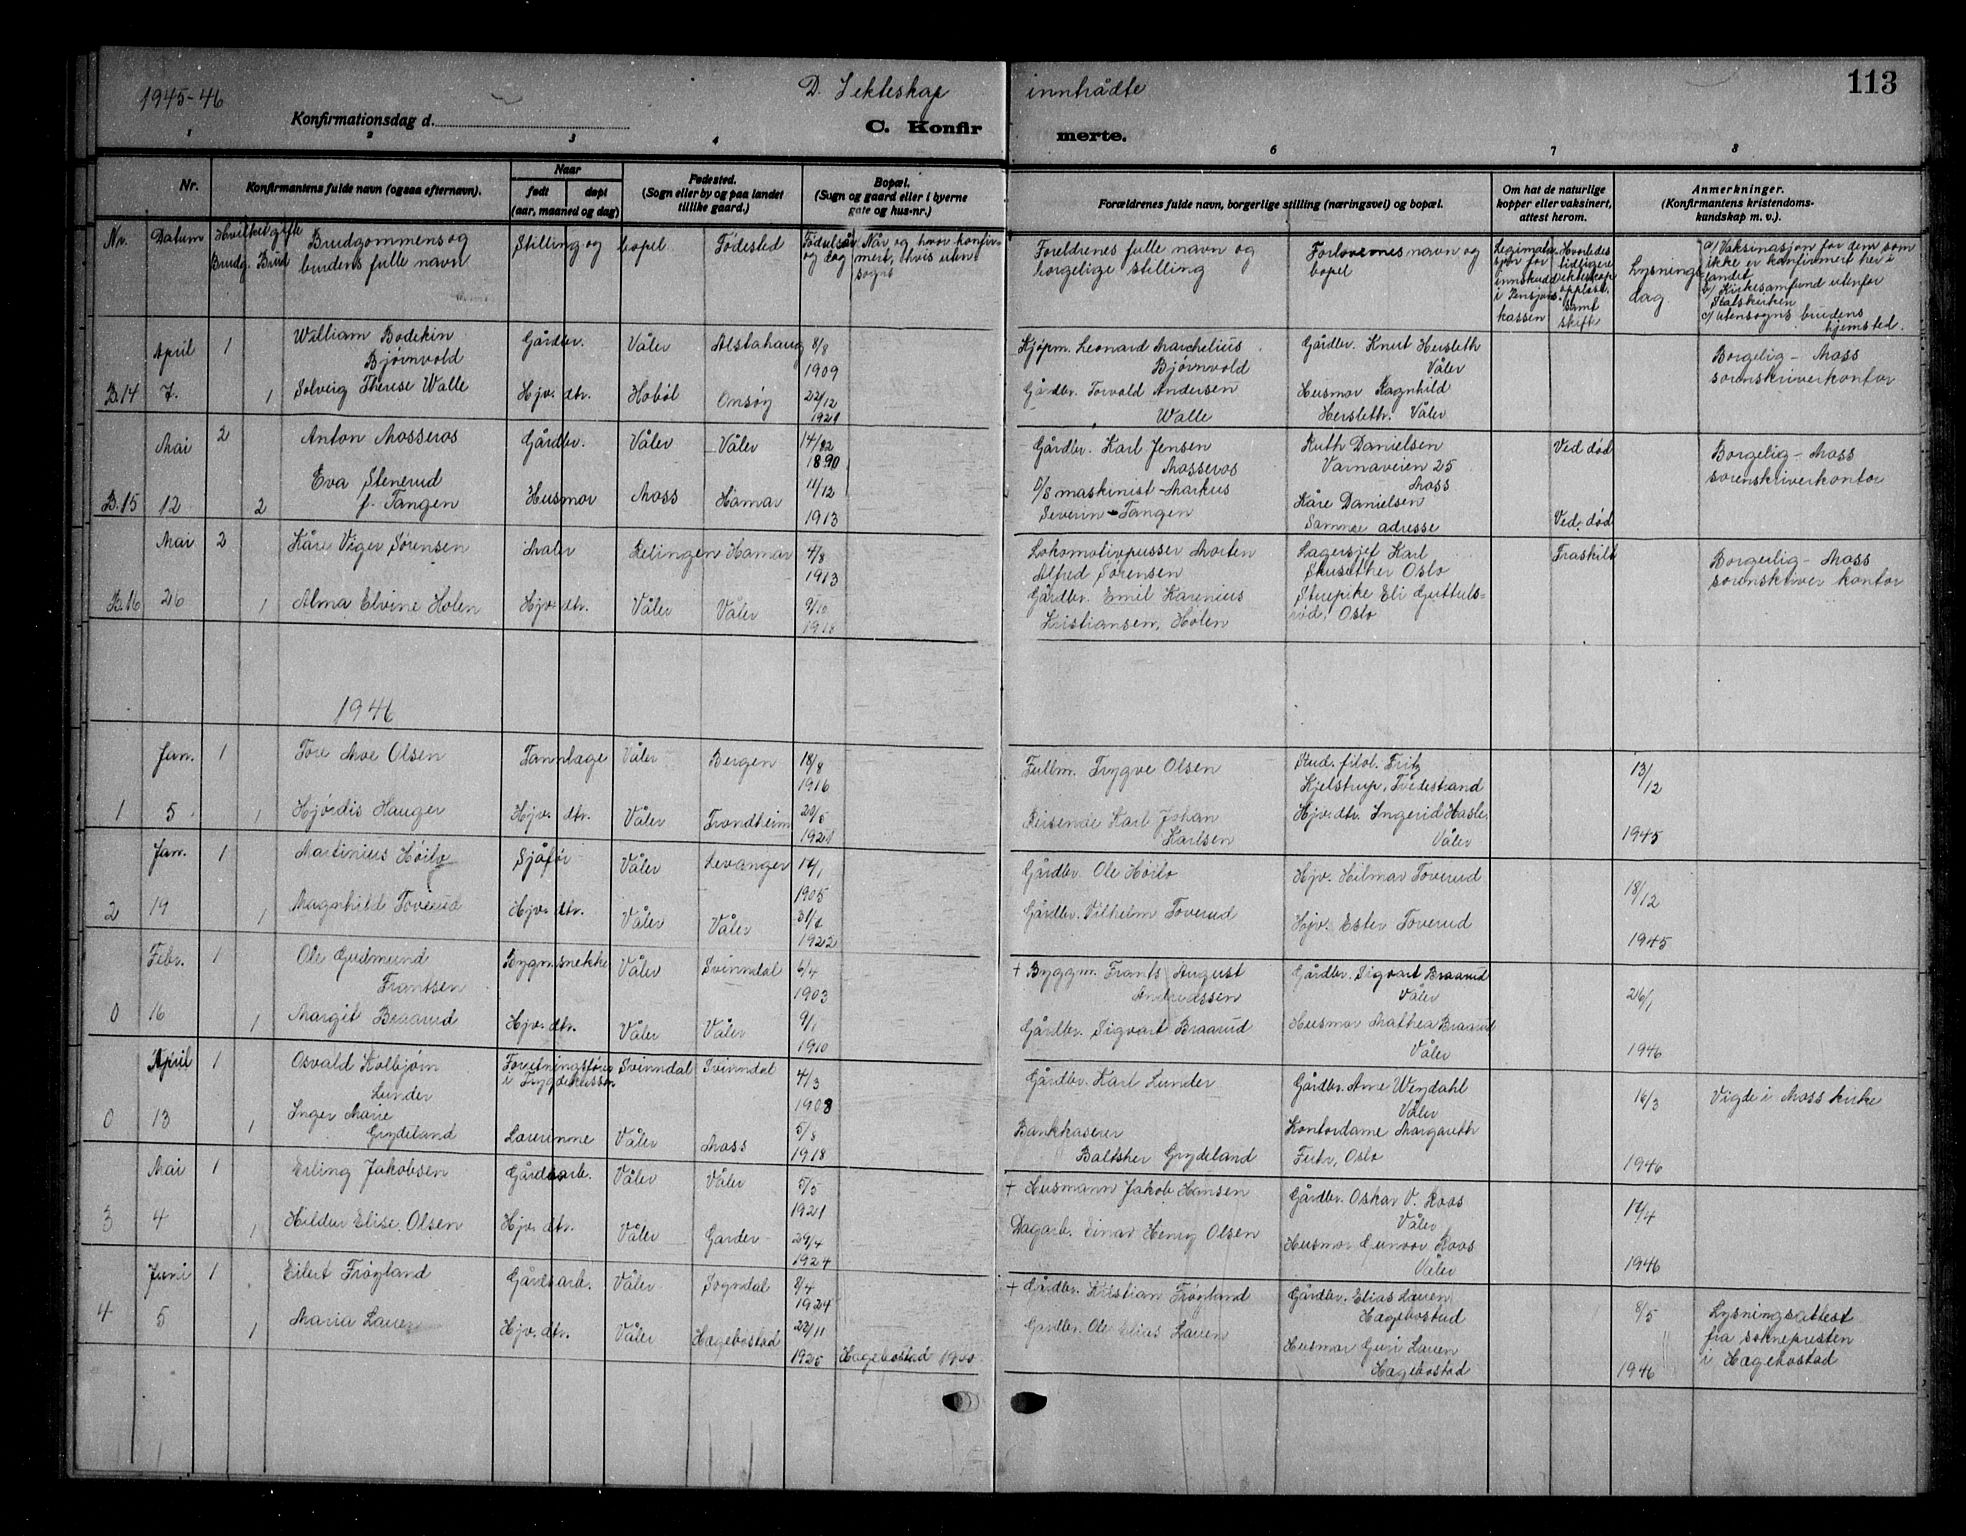 1945-46
D. I ekteskap inntrådte
113
Konfirmationsdag d.
C. Konfir merte.
1 2 3 4 6 7 8
Nr.
Konfirmantens fulde navn (ogsaa efternavn).
Naar
født døpt
(aar, maaned og dag)
Fødested.
(Sogn eller by og paa landet
tillike gaard.)
Bopæl.
(Sogn og gaard eller i byerne
gate og hus-nr.)
Forældrenes fulde navn, borgerlige stilling (næringsvei) og bopæl.
Om hat de naturlige
kopper eller vaksinert,
attest herom.
Anmerkninger.
(Konfirmantens kristendoms-
kundskap m. v.).
Nr. Datum Hvilket gifte
Brudg. Brud
Brudgommens og
brudens fulle navn
Stilling og bopel
Fødested
Fødselsår
og dag
Når og hvor konfir-
mert, hvis uten
sogns
Foreldrenes fulle navn og
borgelige stilling
Forlovernes navn og
bopel
Legimata-
sjon for
innskudd
i Pensjons-
kassen
Hvorledes
tidligere
ekteskap
oppløst
samt
skifte
Lysnings
dag
a) Vaksinasjon for dem som
ikke er konfirmert her i
landet
b) Kirkesamfund utenfor
Statskirken
c) Utensogns brudens
hjemsted.
April 1 William Bodekin
Bjørnvold
Gårdbr. Våler Alstahaug 8/8
1909
Kjøpm. Leonard Marchelius
Bjørnvold
Gårdbr. Knut Hersleth
Våler
Borgelig - Moss
sorenskriverkontor
B.14 7. 1 Solveig Therese Walle Hjv. dtr. Hobøl Onsøy 22/12
1921
Gårdbr. Torvald Andersen
Walle
Husmor Ragnhild
Hersleth. Våler
Mai 2 Anton Mosseros Gårdbr. Våler Våler
1890
Gårdbr. Karl Jensen
Mosseros
Ruth Danielsen
Varnaveien 25
Moss
Ved død
Borgelig - Moss
sorenskriverkontor
B.15 12 2 Eva Stenerud
f. Tangen
Husmor Moss Hamar 11/12
1913
D/S maskinist Markus
Severin Tangen
Kåre Danielsen
Samme adresse
Ved død
Mai 2 Kåre Viger Sørensen Maler Relingen Hamar 4/8
1913
Lokomotivpusser Morten
Alfred Sørensen
Lagersjef Karl
Skusether Oslo
Fraskilt
Borgerlig - Moss
sorenskriver kontor
B.16 26 1 Alma Elvine Holen Hjv. dtr. Våler Våler 9/10
1918
Gårdbr. Emil Karenius
Kristiansen, Holen
Eli Guttuls-
rød, Oslo
1946
Jan. 1 Tore Moe Olsen Tannlæge Våler Bergen 18/8
1916
Fullm. Trygve Olsen
Stud. filol. Fritz
Kjelstrup, Tvedestrand
13/12
1 5 1 Hjørdis Hauger Hjv. dtr. Våler Trondheim 20/5
1921
Reisende Karl Johan
Karlsen
Hjv. dtr. Ingerid Hasle
Våler
1945
Jan. 1 Martinius Høilo Sjåfør Våler Levanger 14/1
1905
Gårdbr. Ole Høilo
Hjv. Hilmar Toverud
18/12
2 19 1 Magnhild Toverud Hjv. dtr. Våler Våler
1922
Gårdbr. Vilhelm Toverud
Hjv. Ester Toverud
1945
Febr. 1 Ole Gudmund
Frantsen
Bygn. snekke Våler Svinndal 6/4
1903
+ Byggm. Frants August
Andreassen
Gårdbr. Sigvart Braarud
Våler
26/1
0 16 1 Margit Braarud Hjv. dtr. Våler Våler 9/1
1910
Gårdbr. Sigvart Braarud
Husmor Mathea Braarud
Våler
1946
April 1 Osvald Kolbjørn
Lunder
Forretningsfører
i Trygdekassen
Svinndal Svinndal 4/3
1908
Gårdbr. Karl Lunder
Gårdbr. Arne Weydahl
Våler
16/3
Vigde i Moss kirke
0 13 1 Inger Marie
Grydeland
Lærerinne Våler Moss 5/8
1918
Bankkaserer
Baltsher Grydeland
Kontordame Margareth
Fuhr, Oslo
1946
Mai 1 Erling Jakobsen Gårdsarb. Våler Våler 5/5
1921
+ Husmann Jakob Hansen
Gårdbr. Oskar V. Roos
Våler
14/4
3 4 1 Hildur Elise Olsen Hjv. dtr. Våler Garder 29/4
1924
Dagarb. Einar Henry Olsen
Husmor Gunvor Roos
Våler
1946
Juni 1 Eilert Frøyland Gårdsarb. Våler Sogndal 8/4
1924
+ Gårdbr. Kristian Frøyland
Gårdbr. Elias Lauen
Hægebostad
8/5
Lysningsattest
fra soknepresten
i Hægebostad
4 5 1 Maria Lauen Hjv. dtr. Våler Hægebostad 22/11
1925 Hægebostad 1940
Gårdbr. Ole Elias Lauen
Husmor Guri Lauen
Hægebostad
1946